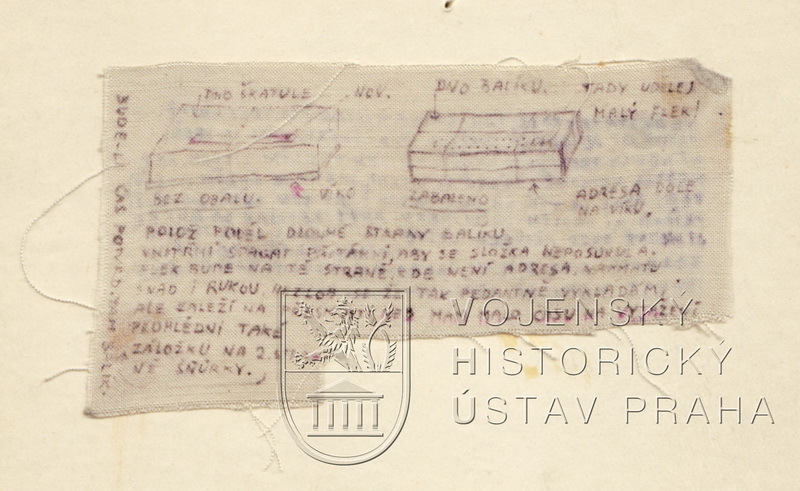 DNO ŠKATULE NOV.
BEZ OBALU. VÍKO
DNO BALÍKU. TADY UDĚLEJ
MALÝ FLEK!
ZABALENO
ADRESA DOLE
NA VÍKU.
POLOŽ PODÉL DLOUHÉ STRANY BALÍKU,
VNITŘNÍ ŠPAGÁT ABY SE SLOŽKA NEPOSUNULA.
FLEK BUDE NA TÉ STRANĚ, KDE NENÍ ADRESA,
SNAD I RUKOU. ŽE TAK PEDANTNĚ VYKLÁDÁM,
ALE ZÁLEŽÍ NA MÁŠ MÁLO ČASU NA
PROHLÉDNI TAKÉ
ZÁLOŽKU NA 2.
NÉ ŠŇŮRKY.
BUDE-LI ČAS BALÍK.
VOJENSKÝ
HISTORICKÝ
ÚSTAV PRAHA